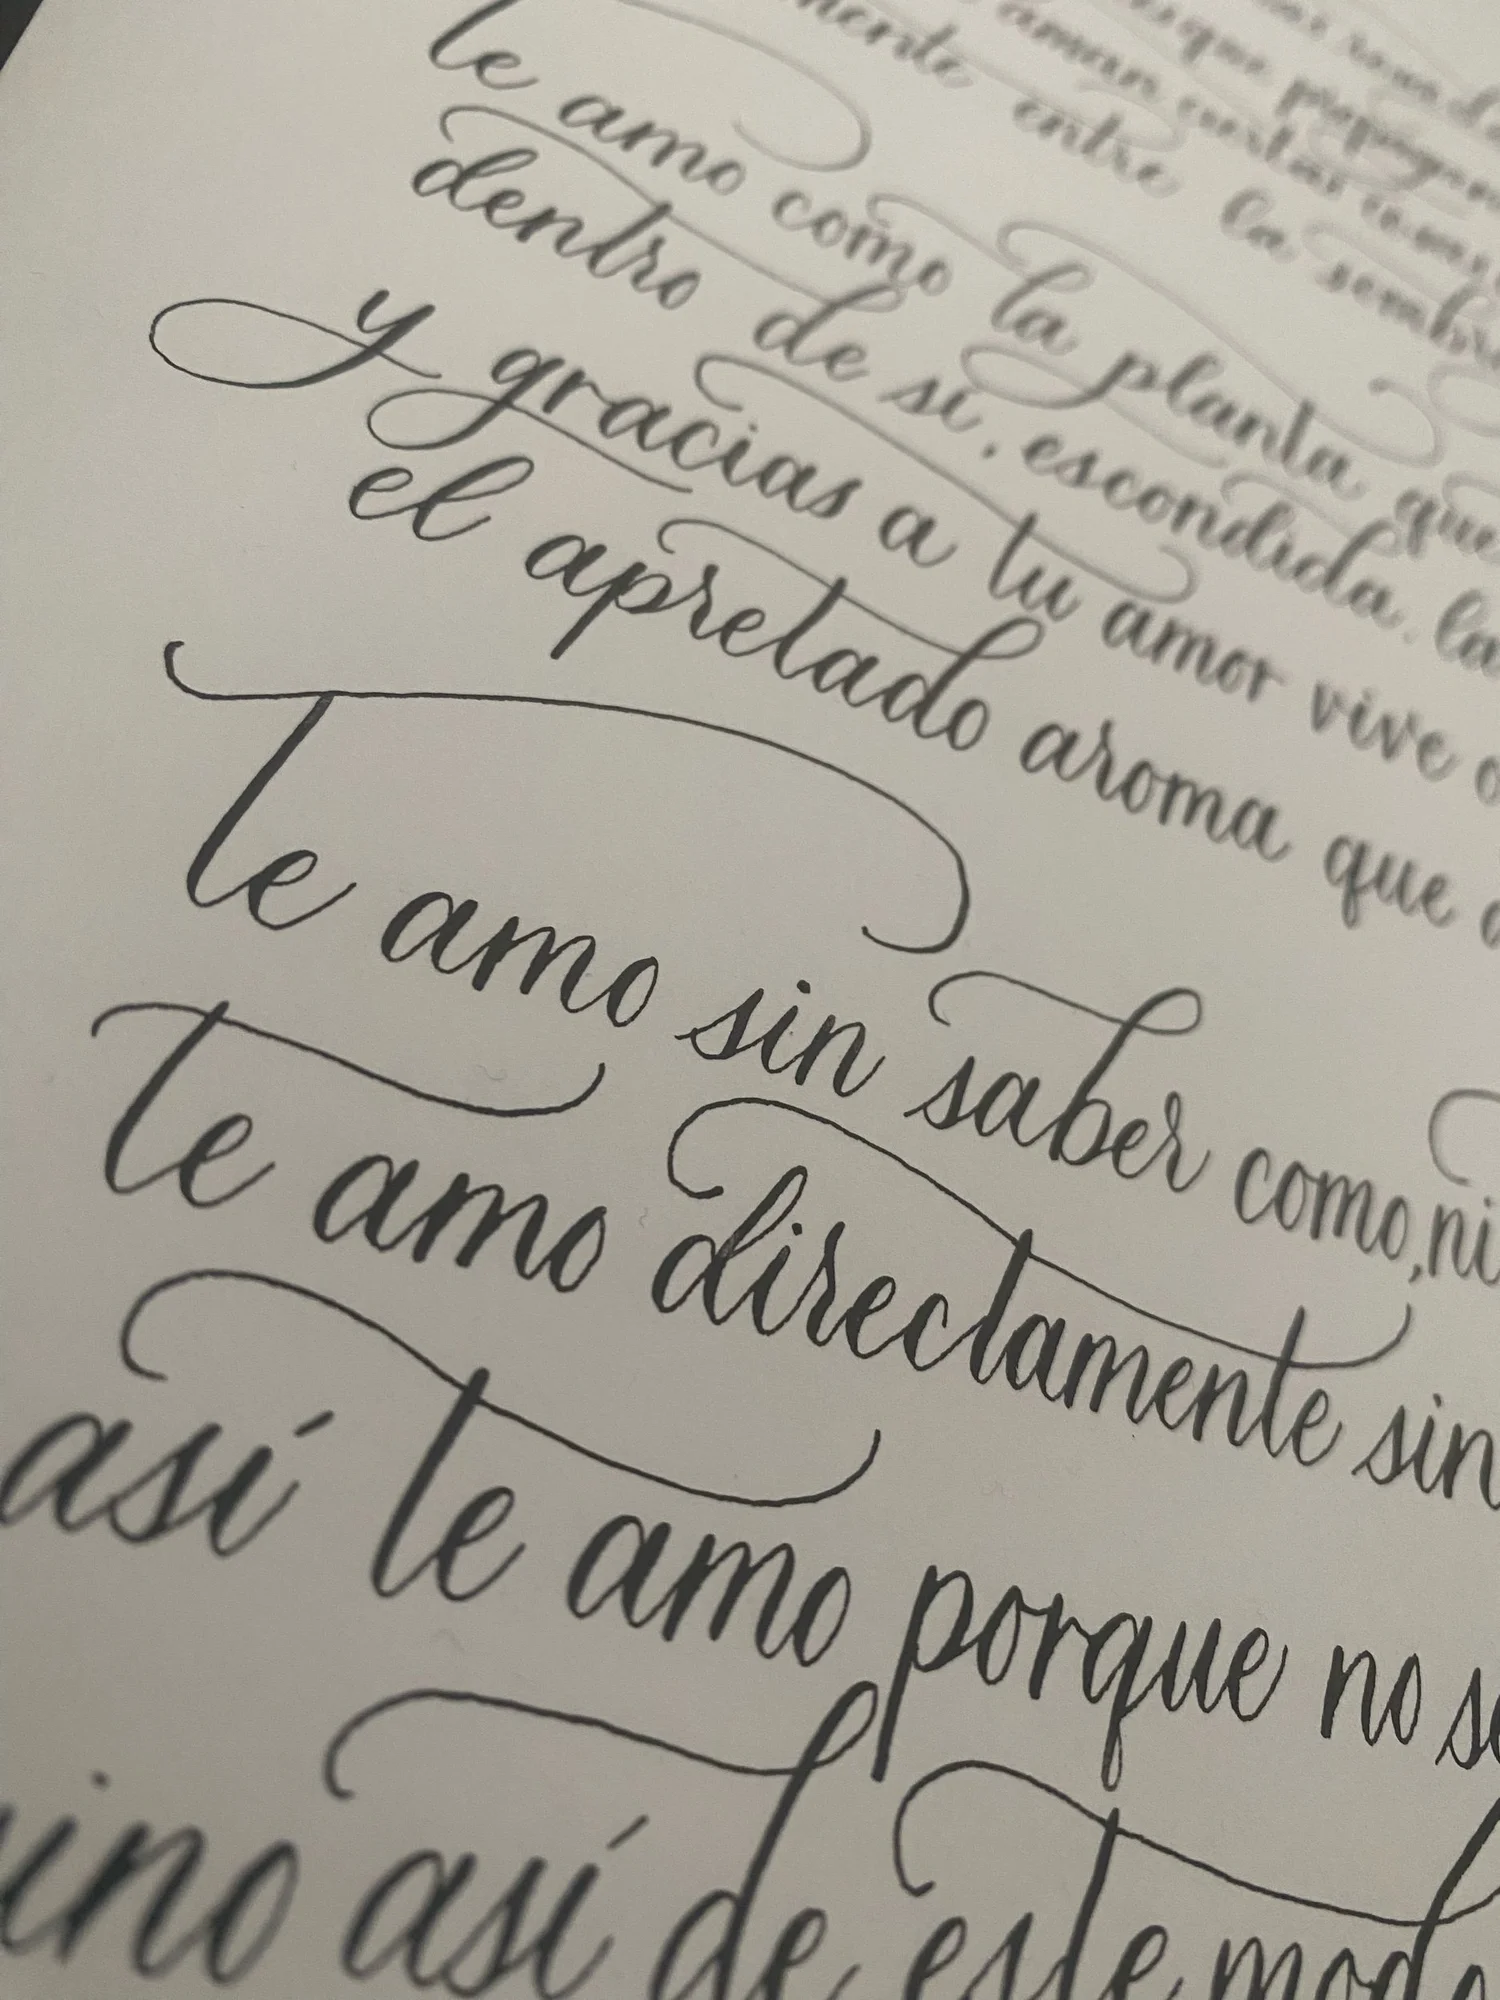 que propagan
aman ciertas cosas
mente entre la sombr
te amo como la planta que
dentro de sí, escondida, la
y gracias a tu amor vive
el apretado aroma que
Te amo sin saber como, ni
te amo directamente sin
así te amo porque no s
sino así de este modo